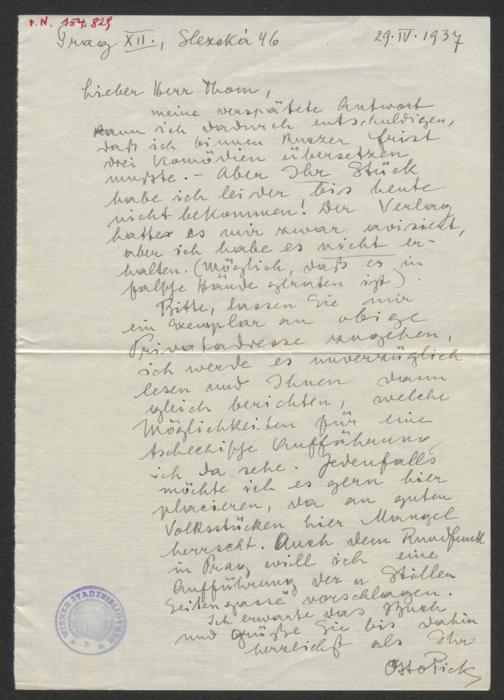 I.N. 154.829
Prag XII., Slezská 46 29.IV.1937
Lieber Herr Thom,
meine verspätete Antwort
kann ich dadurch entschuldigen,
daß ich binnen kurzer Frist
drei Komödien übersetzen
mußte. – Aber Ihr Stück
habe ich leider bis heute
nicht bekommen! Der Verlag
hatte es mir zwar avisiert,
aber ich habe es nicht er-
halten. (Möglich, daß es in
falsche Hände geraten ist)
Bitte, lassen Sie mir
ein Exemplar an obige
Privatadresse zugehen,
ich werde es unverzüglich
lesen und Ihnen dann
gleich berichten, welche
Möglichkeiten für eine
tschechische Aufführung
ich da sehe. Jedenfalls
möchte ich es gern hier
placieren, da an guten
Volksstücken hier Mangel
herrscht. Auch dem Rundfunk
in Prag will ich eine
Aufführung der „Stillen
Seitengasse" vorschlagen.
Ich erwarte das Buch
und grüße Sie bis dahin
herzlichst als Ihr
Otto Pick
WIENER STADTBIBLIOTHEK